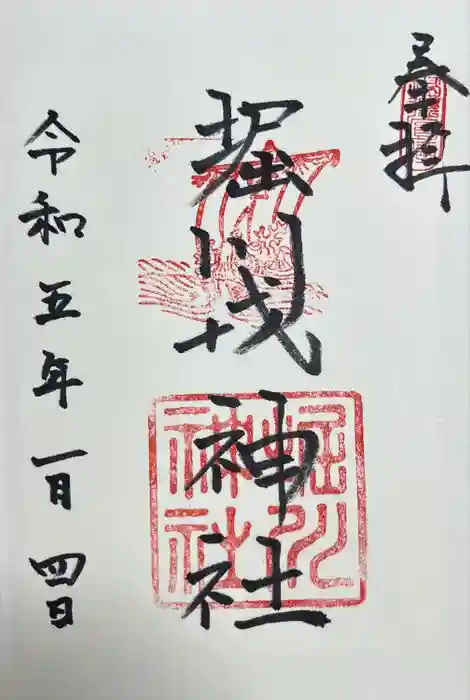 奉拝
堀川戎神社
堀川
神社
令和五年一月四日